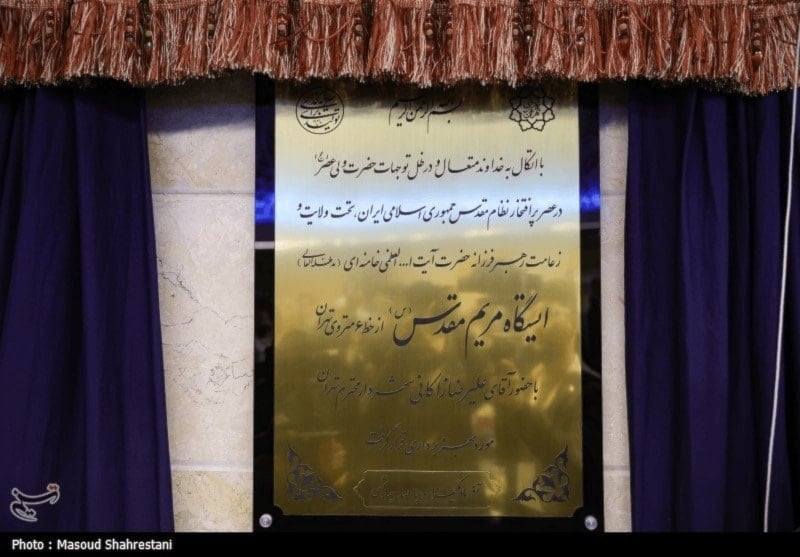 بسم الله الرحمن الرحیم
با اتکال به خداوند متعال و در ظل توجهات حضرت ولی عصر (عج)
در عصر پر افتخار نظام مقدس جمهوری اسلامی ایران، تحت ولایت و
زعامت رهبر فرزانه حضرت آیت ا... العظمی خامنه ای (مدظله العالی)
ایستگاه مریم مقدس (س) از خط ۶ متروی تهران
با حضور آقای علیرضا زاکانی شهردار محترم تهران
مورد بهره برداری قرار گرفت
تسنیم
Photo : Masoud Shahrestani